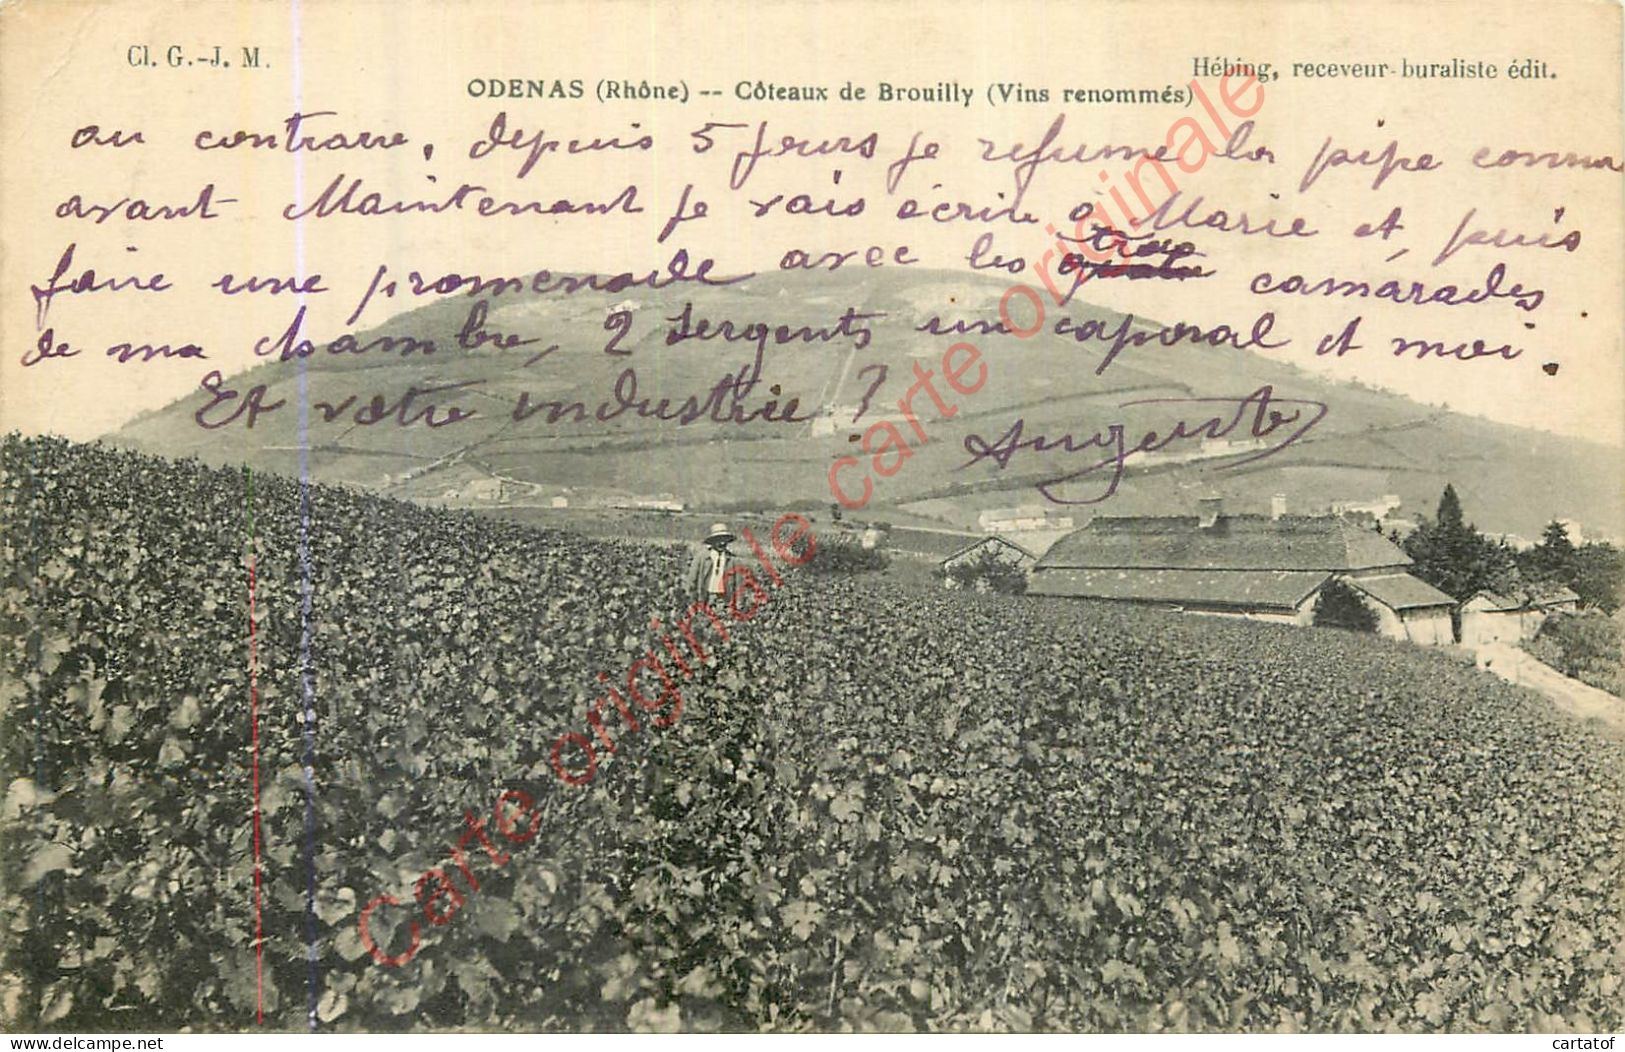 Cl. G.-J. M.
Hébing, receveur-buraliste édit.
ODENAS (Rhône) -- Côteaux de Brouilly (Vins renommés)
au contraire, depuis 5 jours je refume la pipe comme
avant Maintenant je vais écrire à Marie et, puis
faire une promenade avec les trois camarades
de ma chambre, 2 sergents un caporal et moi.
Et votre industrie ?
Auguste
Carte originale carte originale
delcampe.net
cartatof